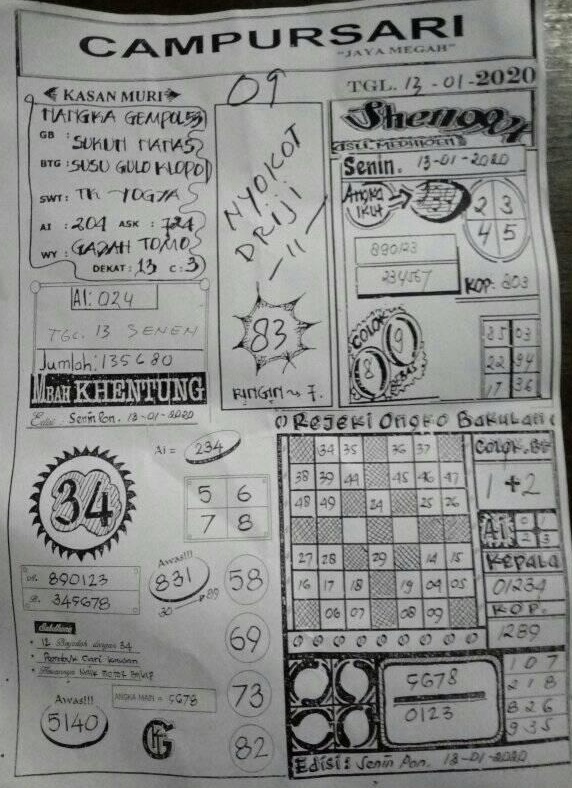 CAMPURSARI
"JAYA MEGAH"
KASAN MURI
GB : SUKUN NANAS
BTG : SUSU GULO KLOPO
SWT : TK YOGYA
AI : 204 ASK : 724
WY : GAJAH TOMO
DEKAT : 13 C : 3
AI: 024
TGL. 13 SENEN
Jumlah: 135680
MBAH KHENTUNG
09
NYOKOT
DRIJI
83
RINGIN 7.
TGL. 13-01-2020
Senin. 13-01-2020
ANGKA
IKUT
2 3
4 5
890123
234567
KOP: 803
COLOK
9
8
03
22 94
17 36
Edisi: Senin Pon. 13-01-2020
Ai = 234
34
5 6
7 8
890123
345678
Awas!!!
831
30 89
58
69
73
82
Awas!!!
5140
ANGKA MAIN = 5678
Rejeki Ongko Bakulan
34 35 36 37
38 39 44 45 46 47
48 49 24 25 26
27 28 29 14 15
16 17 18 19 04 05
06 07 08 09
1 + 2
Ai 0 1
2 3
KEPALA
01234
KOP.
289
5678
0123
107
218
826
935
Edisi: Senin Pon. 13-01-2020